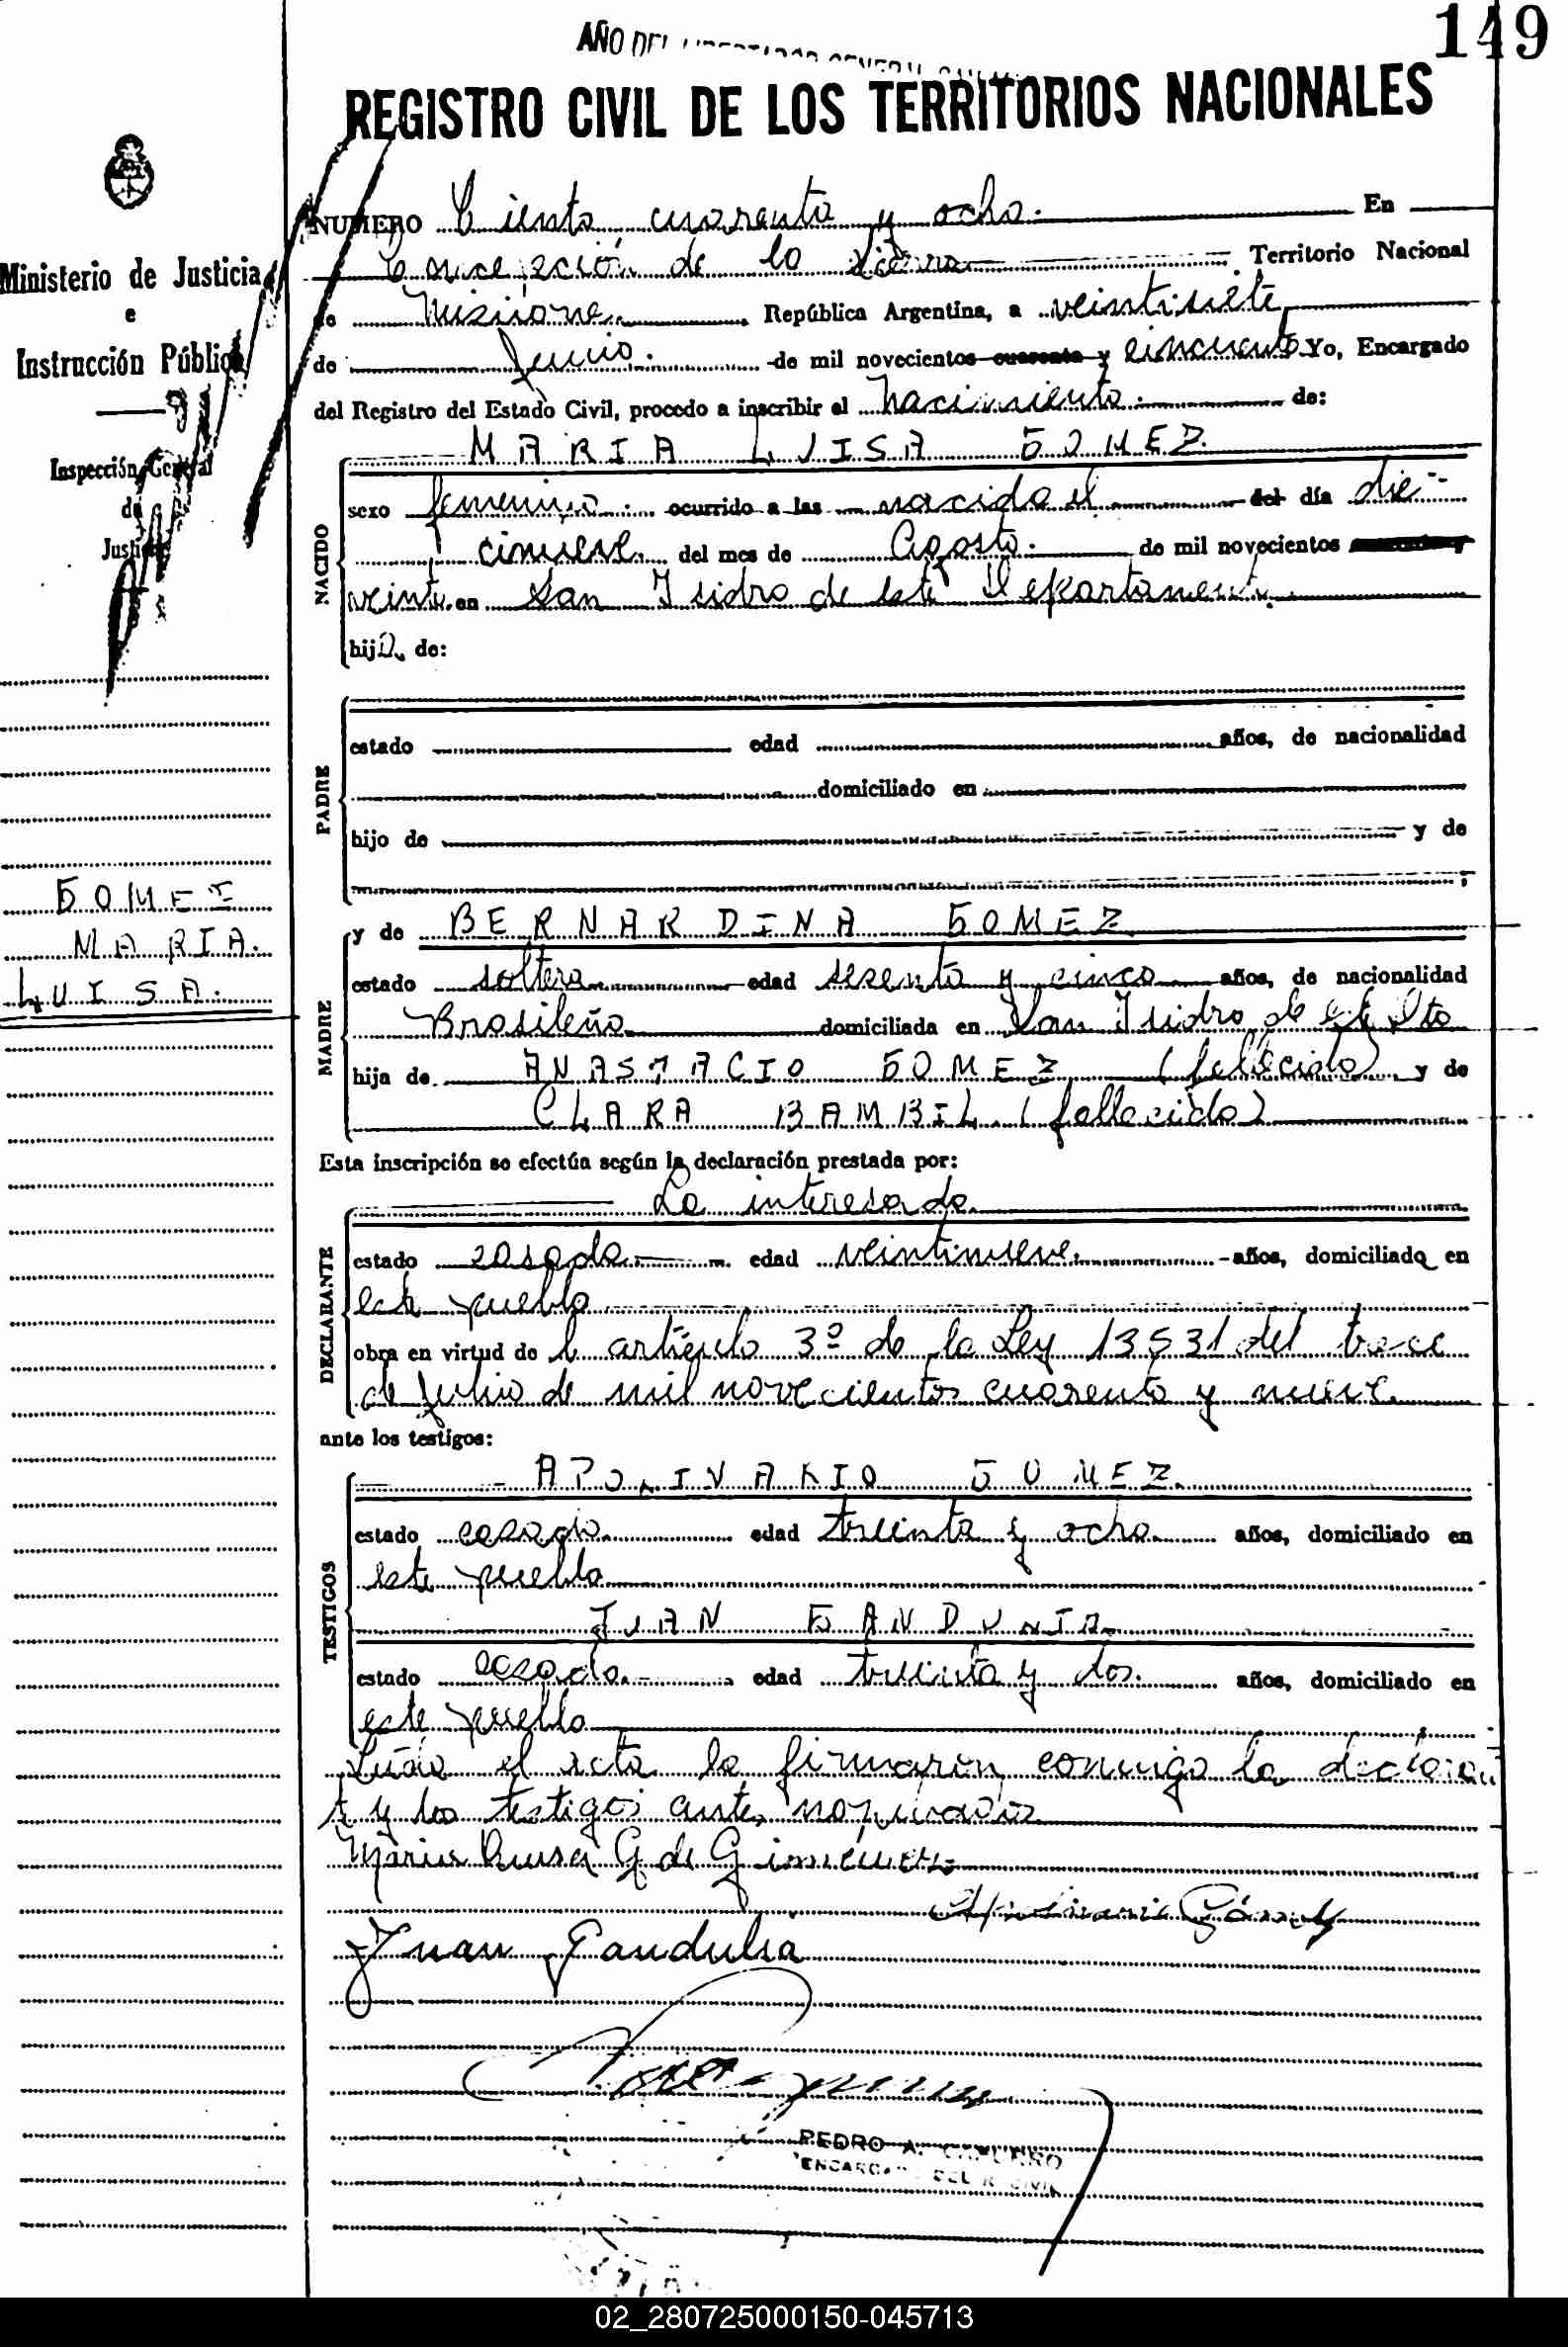 149
AÑO DEL LIBERTADOR GENERAL
REGISTRO CIVIL DE LOS TERRITORIOS NACIONALES
Ministerio de Justicia
e
Instrucción Pública
Inspección General
de
Justicia
GOMEZ
MARIA
LUISA.
NUMERO Ciento cuarenta y ocho. En
Concepción de la Sierra Territorio Nacional
de Misiones República Argentina, a veintisiete
de Junio. de mil novecientos cuarenta y cincuenta Yo, Encargado
del Registro del Estado Civil, procedo a inscribir el nacimiento. de:
MARIA LUISA GOMEZ
NACIDO
sexo femenino. ocurrido a las nacida el del día die-
cinueve del mes de Agosto. de mil novecientos
veinte en San Isidro de este Departamento.
hija de:
PADRE
estado edad años, de nacionalidad
domiciliado en
hijo de y de
;
MADRE
y de BERNARDINA GOMEZ
estado soltera edad sesenta y cinco años, de nacionalidad
Brasileña domiciliada en San Isidro de este Dto
hija de ANASTACIO GOMEZ (fallecido) y de
CLARA BAMBIL. (fallecida)
Esta inscripción se efectúa según la declaración prestada por:
La interesada
DECLARANTE
estado casada edad veintinueve. años, domiciliada en
este pueblo
obra en virtud de l artículo 3º de la Ley 13531 del trece
de Julio de mil novecientos cuarenta y nueve
ante los testigos:
TESTIGOS
APOLINARIO GOMEZ.
estado casado. edad treinta y ocho. años, domiciliado en
este pueblo
JUAN GANDULIA.
estado casado. edad treinta y dos. años, domiciliado en
este pueblo
Leída el acta la firmaron conmigo la declaran
te y los testigos antes nombrados
Maria Luisa G de Giménez
Apolinario Gómez
Juan Gandulia
PEDRO A.
ENCARGADO DEL R. CIVIL
02_280725000150-045713